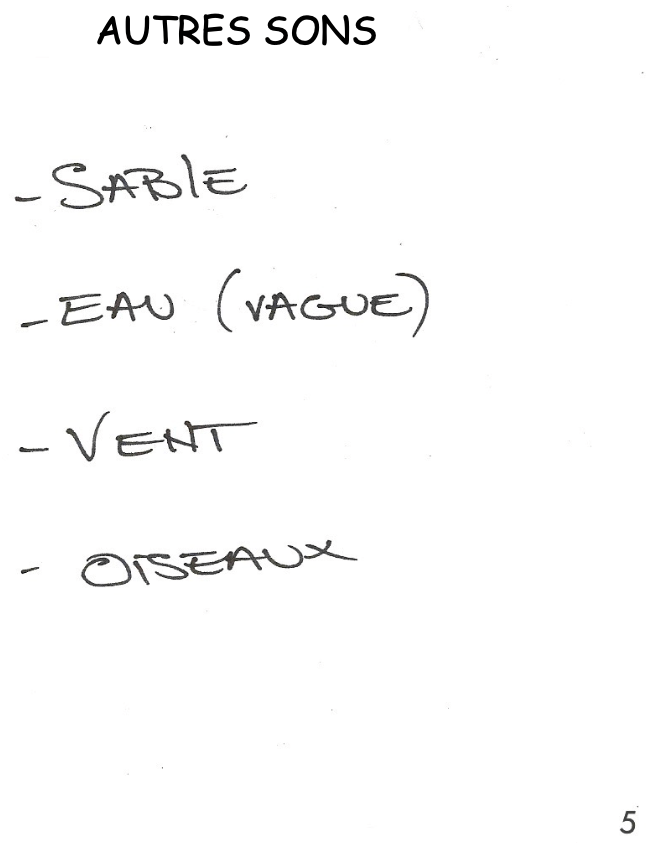 AUTRES SONS
- SABLE
- EAU (VAGUE)
- VENT
- OISEAUX
5